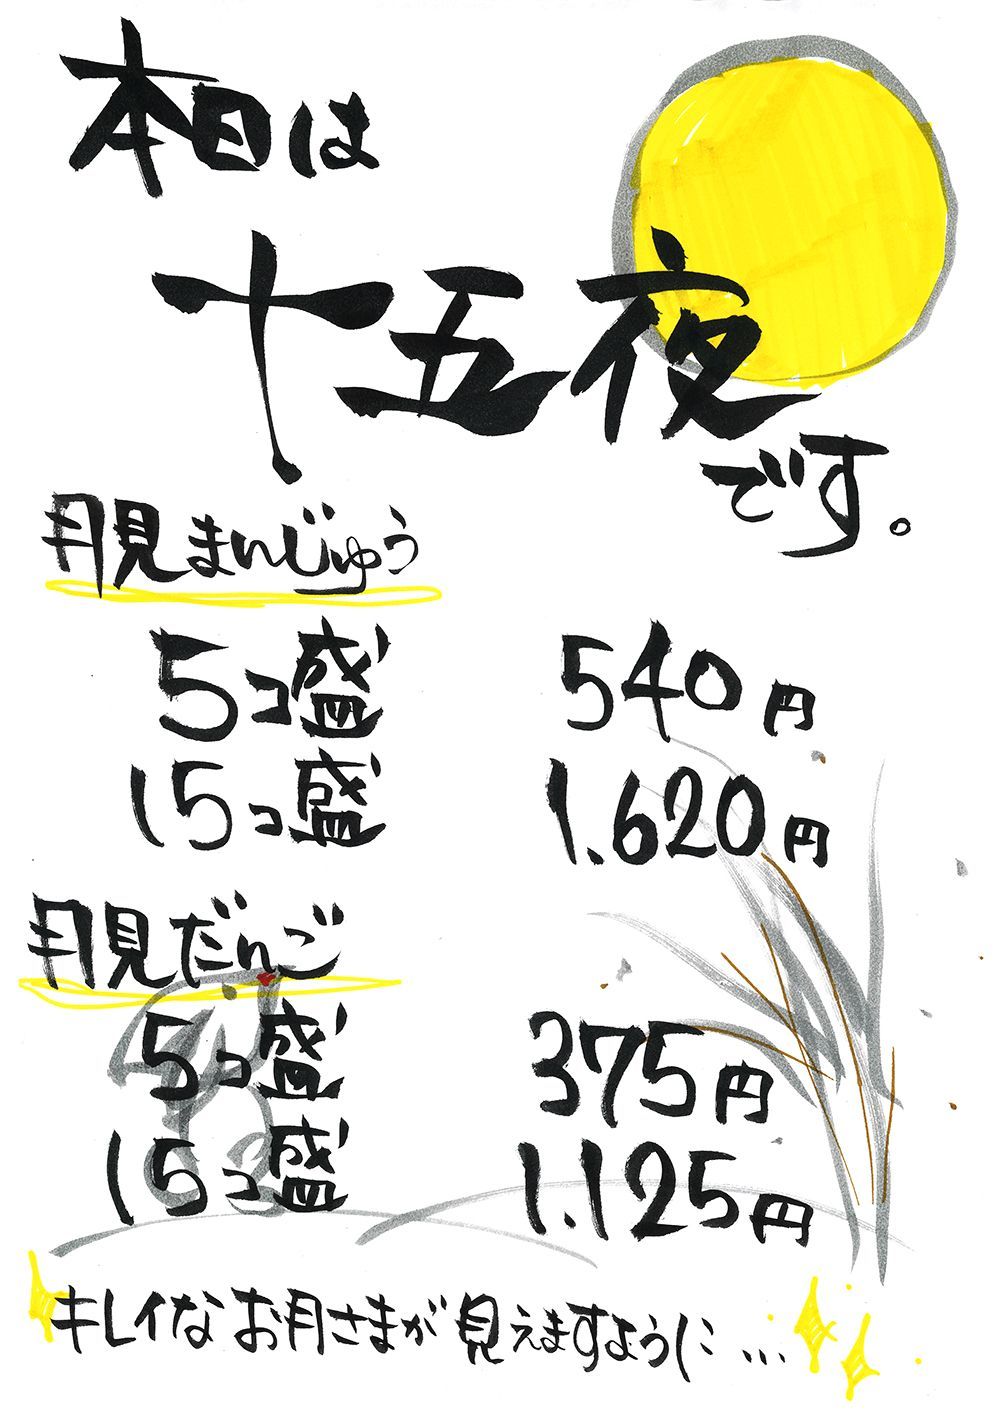 本日は
十五夜
です。
月見まんじゅう
5コ盛 540円
15コ盛 1.620円
月見だんご
5コ盛 375円
15コ盛 1.125円
キレイなお月さまが見えますように...